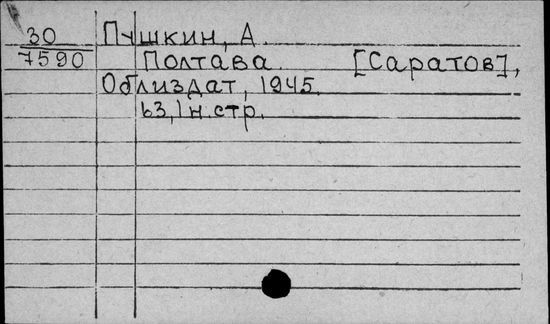 30 Пушкин, А.
7590 Полтава. [Саратов],
Облиздат, 1945.
63, 1 н. стр.